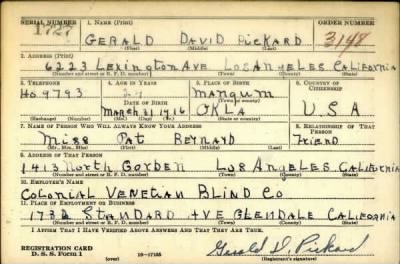 SERIAL NUMBER 1. NAME (Print) ORDER NUMBER
1727 GERALD DAVID PICKARD 3148
(First) (Middle) (Last)
2. ADDRESS (Print)
6223 LEXINGTON AVE LOS ANGELES CALIFORNIA
(Number and street or R. F. D. number) (Town) (County) (State)
3. TELEPHONE 4. AGE IN YEARS 5. PLACE OF BIRTH 6. COUNTRY OF CITIZENSHIP
HO 9793 24 MANGUM
DATE OF BIRTH (Town or county)
MARCH 21 1916 OKLA U S A
(Exchange) (Number) (Mo.) (Day) (Yr.) (State or country)
7. NAME OF PERSON WHO WILL ALWAYS KNOW YOUR ADDRESS 8. RELATIONSHIP OF THAT PERSON
MISS PAT FRIEND
(Mr., Mrs., Miss) (First) (Middle) (Last)
9. ADDRESS OF THAT PERSON
1413 NORTH GORDEN LOS ANGELES CALIFORNIA
(Number and street or R. F. D. number) (Town) (County) (State)
10. EMPLOYER'S NAME
COLONIAL VENETIAN BLIND CO
11. PLACE OF EMPLOYMENT OR BUSINESS
STANDARD AVE GLENDALE CALIFORNIA
(Number and street or R. F. D. number) (Town) (County) (State)
I AFFIRM THAT I HAVE VERIFIED ABOVE ANSWERS AND THAT THEY ARE TRUE.
REGISTRATION CARD
D. S. S. Form 1 (over) 16-17105 Gerald D. Pickard
(Registrant's signature)